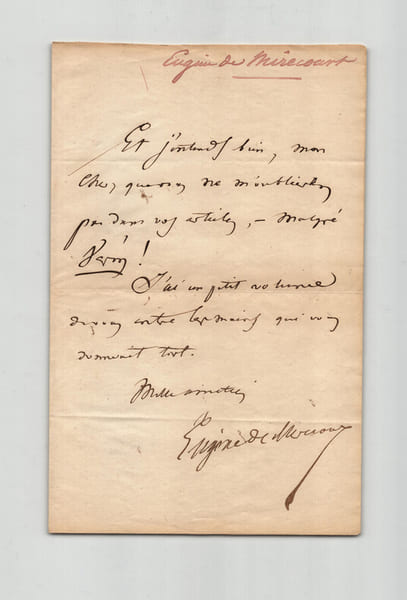 Eugène de Mirecourt
Et j'entends bien, mon
cher, que vous ne m'oublierez
pas dans vos articles, — malgré
Véron !
J'ai un petit volume
entre les mains qui vous
donnerait tort.
Mille amitiés
Eugène de Mirecourt